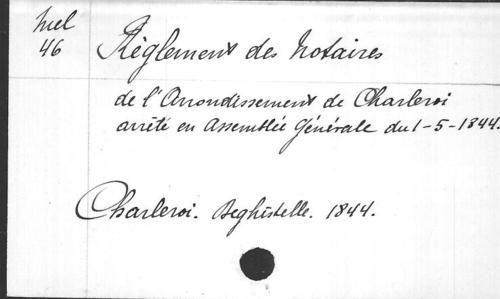 Mel
46
Règlement des Notaires
de l'Arrondissement de Charleroi
arrêté en Assemblée Générale du 1-5-1844.
Charleroi. Deghistelle. 1844.